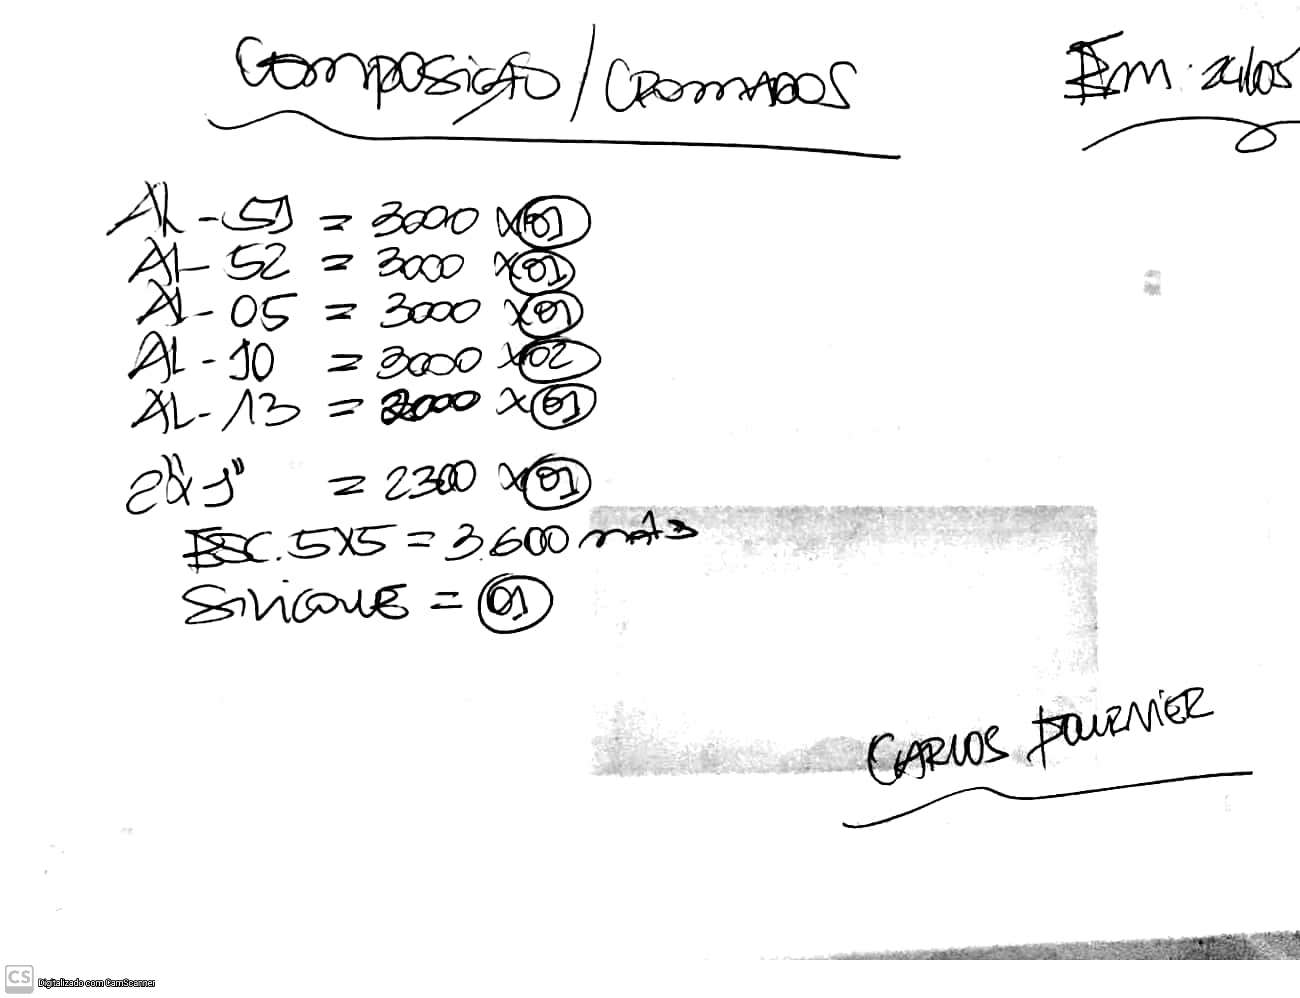 COMPOSIÇÃO / CROMADOS
Em: 24/05
AL-51 = 3000 X 01
AL-52 = 3000 X 01
AL-05 = 3000 X 01
AL-10 = 3000 X 02
AL-13 = 2000 X 01
2" X 1" = 2300 X 01
ESC. 5X5 = 3.600 mts
SILICONE = 01
CARLOS FOURNIER
CS Digitalizado com CamScanner